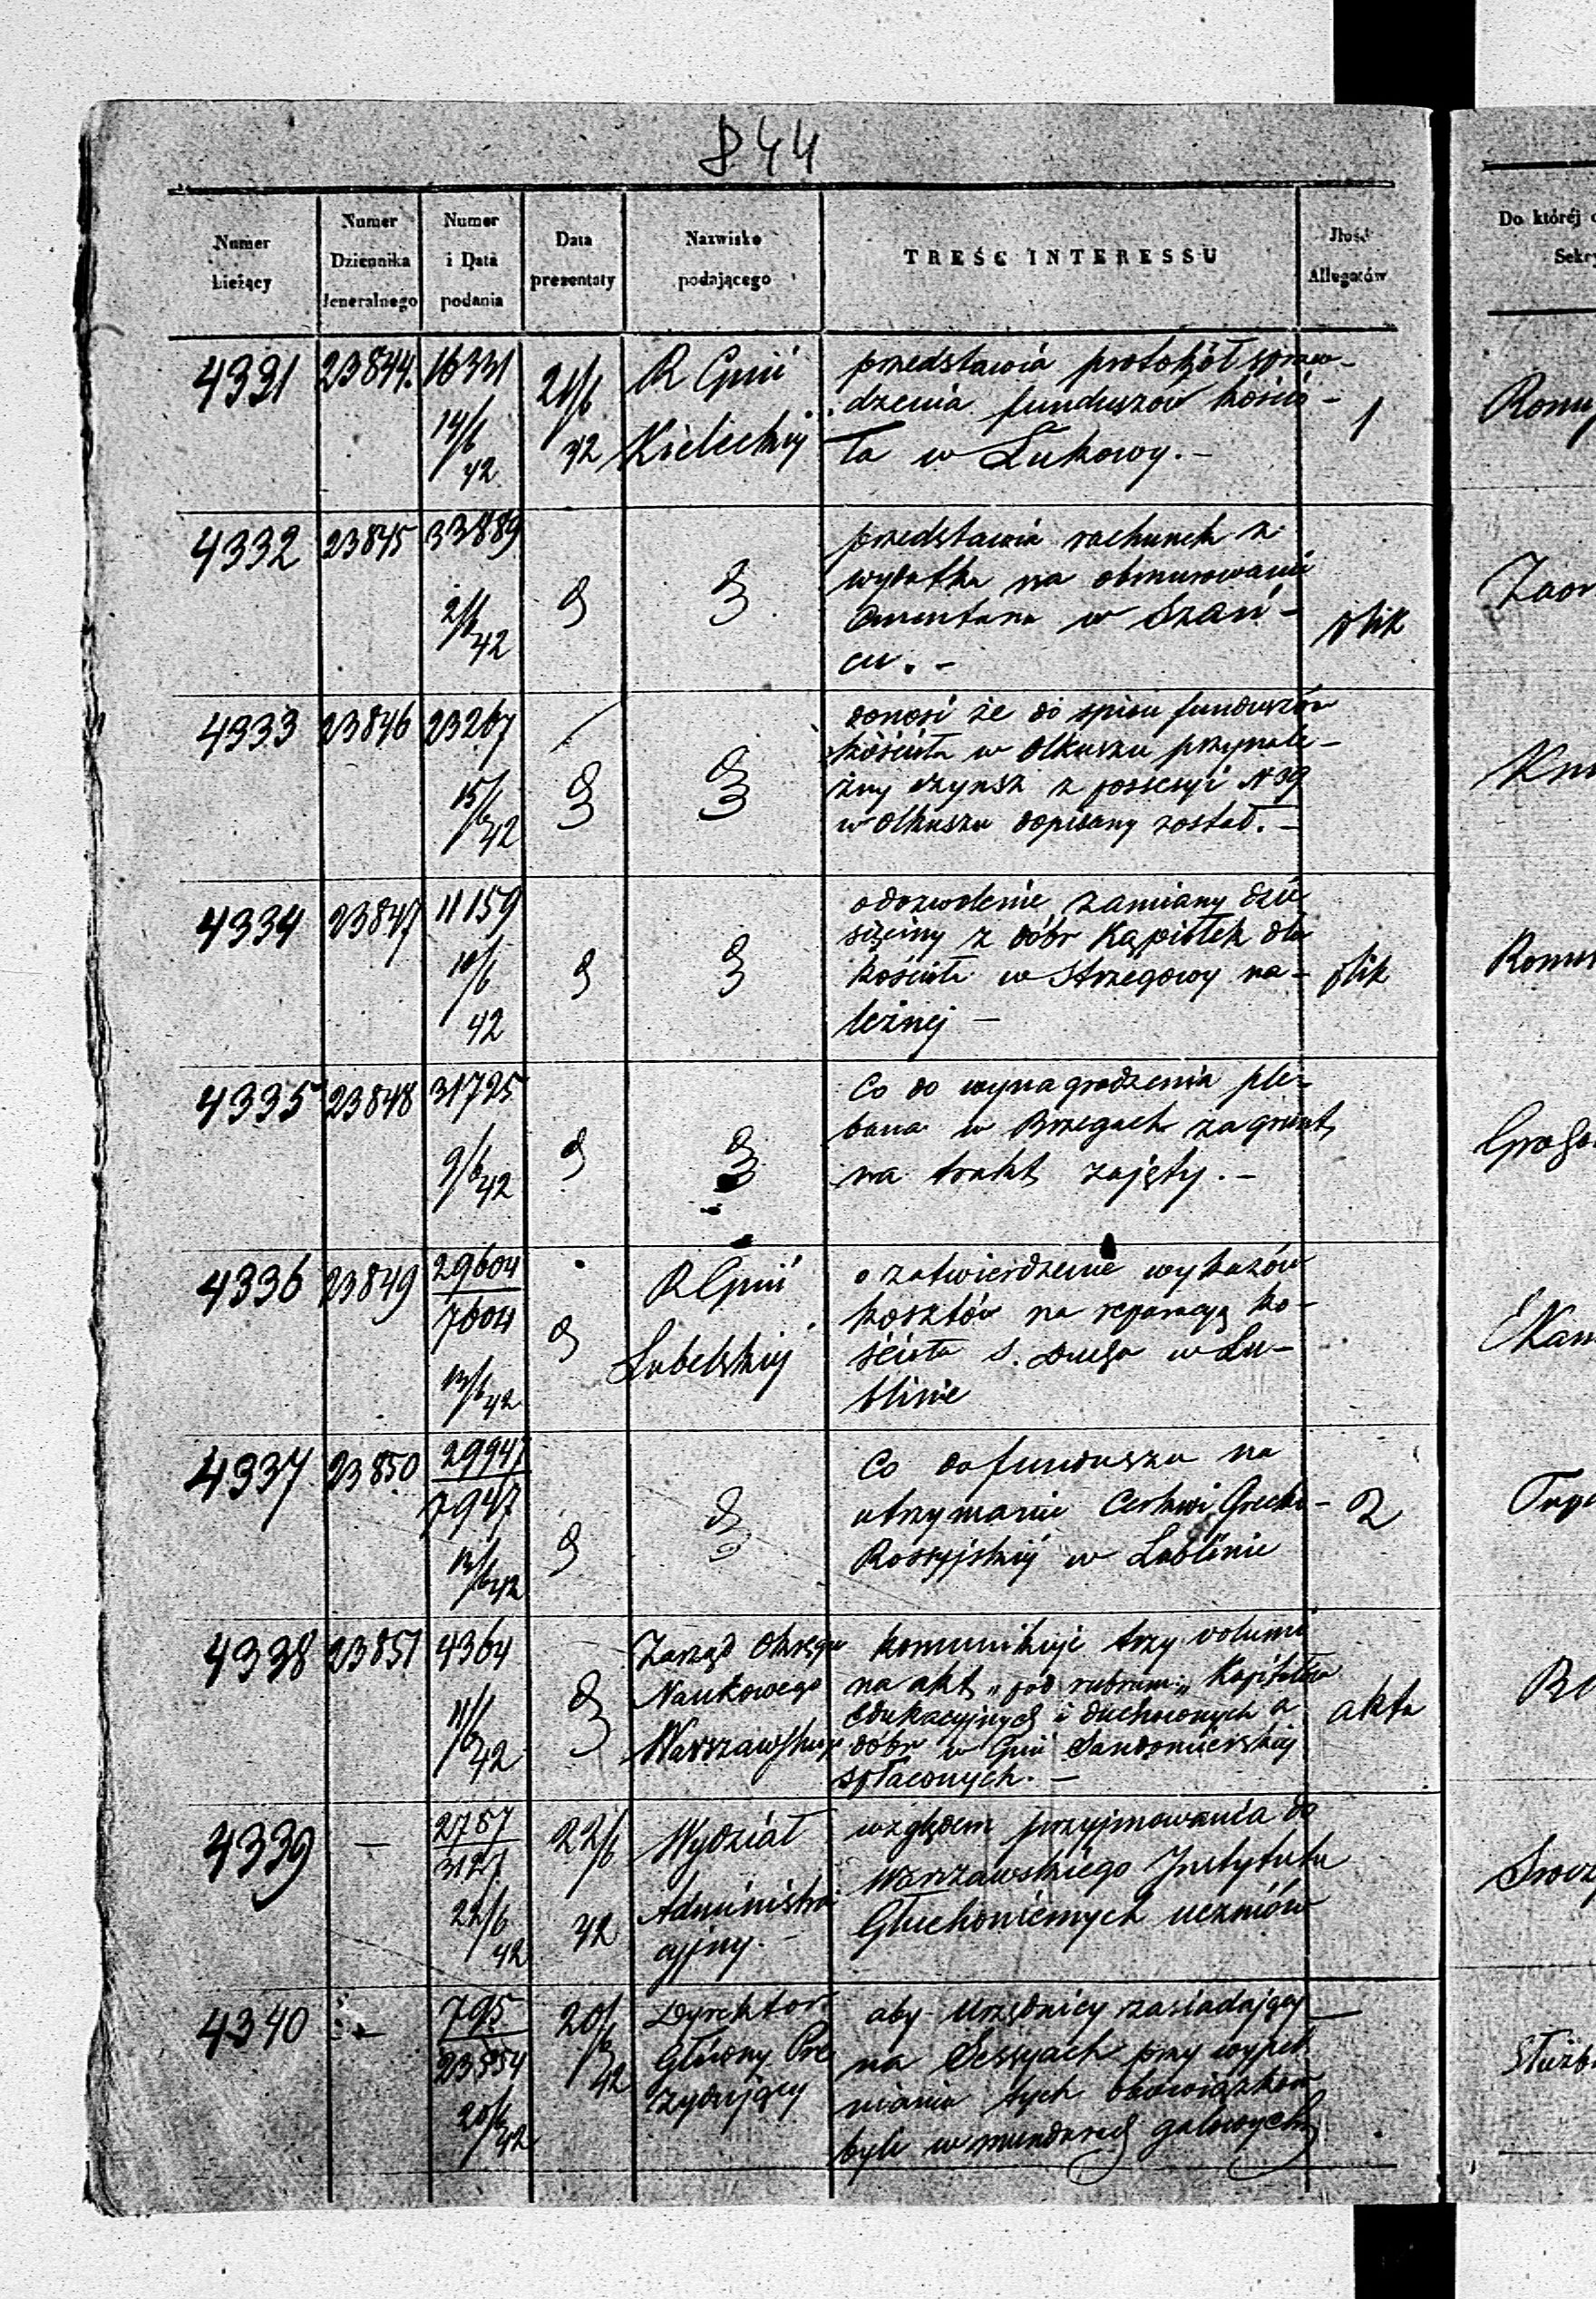 844
Numer bieżący
Numer Dziennika Jeneralnego
Numer i Data podania
Data prezentaty
Nazwisko podającego
TREŚĆ INTERESSU
Ilość Allegatów
Do któréj
Sekr
4331 23844. 16331 14/6 42 21/6 42 R Gnii Kieleckiy
przedstawia protokół spraw-
dzenia funduszów kościo-
ła w Łukowy. –
1
4332 23845 33889 2/6 42
przedstawia rachunek z
wydatku na obmurowanie
Cmentarza w Szań-
cu. –
plik
4333 23846 23267 15/6 42
donosi że do spisu funduszów
kościoła w Olkuszu przynale-
żny czynsz z possesyi N 39
w Olkuszu dopisany został. –
4334 23847 11159 10/6 42
o dozwolenie zamiany dzie
sięciny z dóbr Kąpiołek dla
kościoła w Strzegowy na-
leżnej –
plik
4335 23848 31725 9/6 42
Co do wynagrodzenia ple-
bana w Brzegach za grunt
na trakt zajęty. –
4336 23849 29604 7604 12/6 42 R Gnii Lubelskiy
o zatwierdzenie wykazów
kosztów na reparacyą ko-
ścioła S. Ducha w Lu-
blinie
4337 23850 29947 7947 12/6 42
Co do funduszu na
utrzymanie Cerkwi Grecko-
Rossyjskiy w Lublinie
2
4338 23851 4364 11/6 42 Zarząd Okręgu Naukowego Warszawskiego
komunikuje trzy volumi
na akt „pod rubrum„ Kapitałów
edukacyjnych i duchownych z
dóbr w Gnii Sandomierskiej
spłaconych. –
akta
4339 – 2787 3127 22/6 42 22/6 42 Wydział Administra cyjny. –
względem przyjmowania do
Warszawskiego Instytutu
Głuchoniemych uczniów
4340 – 795 23554 20/6 42 20/6 42 Dyrektor Główny Pre zydujący
aby Urzędnicy zasiadający
na Sessyach przy wypeł
nianiu tych obowiązków
byli w mundurach galowych
–